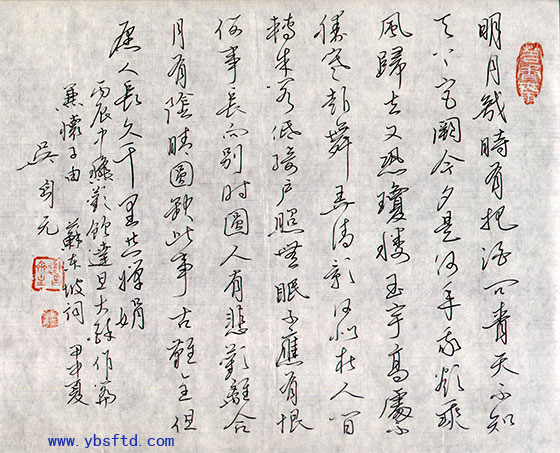 明月幾時有把酒问青天不知
天上宮闕今夕是何年我欲乘
風歸去又恐瓊樓玉宇高處不
勝寒起舞弄清影何似在人间
轉朱閣低綺戶照無眠不應有恨
何事長向別时圓人有悲歡離合
月有陰晴圓缺此事古難全但
願人長久千里共嬋娟
丙辰中穐歡飲達旦大醉作篇
兼懷子由 蘇東坡词 甲申夏
吳元
www.ybsftd.com